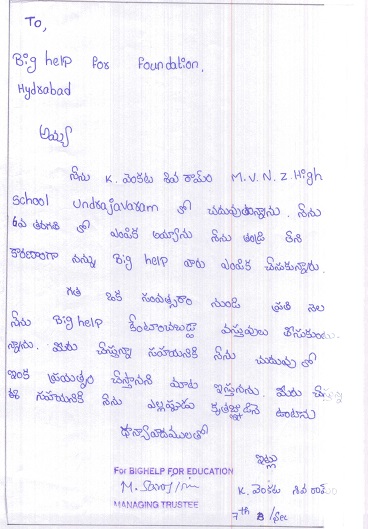 To,
Big help for foundation,
Hydrabad
అయ్య
నేను K. వెంకట శివ రామ్ M.V.N.Z. High
School Undrajavaram లో చదువుతున్నాను. నేను
6వ తరగతి లో ఎంపిక అయ్యాను నేను తండ్రి లేని
కారణంగా నన్ను Big help వారు ఎంపిక చేసుకున్నారు.
గత ఒక సంవత్సరం నుండి ప్రతి నెల
నేను Big help వస్తువులు తీసుకుంటు
న్నాను. మీరు చేస్తున్న సహయనికి నేను చదువు లో
ఇంక ప్రయత్నం చేస్తానని మాట ఇస్తునను. మీరు చేస్తున్న
ఈ సహయనికి నేను ఎల్లప్పుడు కృతజ్ఞుడినై ఉంటాను
ధాన్యావాదములతో
ఇట్లు
K. వెంకట శివ రామ్
7th B /Sec
For BIGHELP FOR EDUCATION
MANAGING TRUSTEE